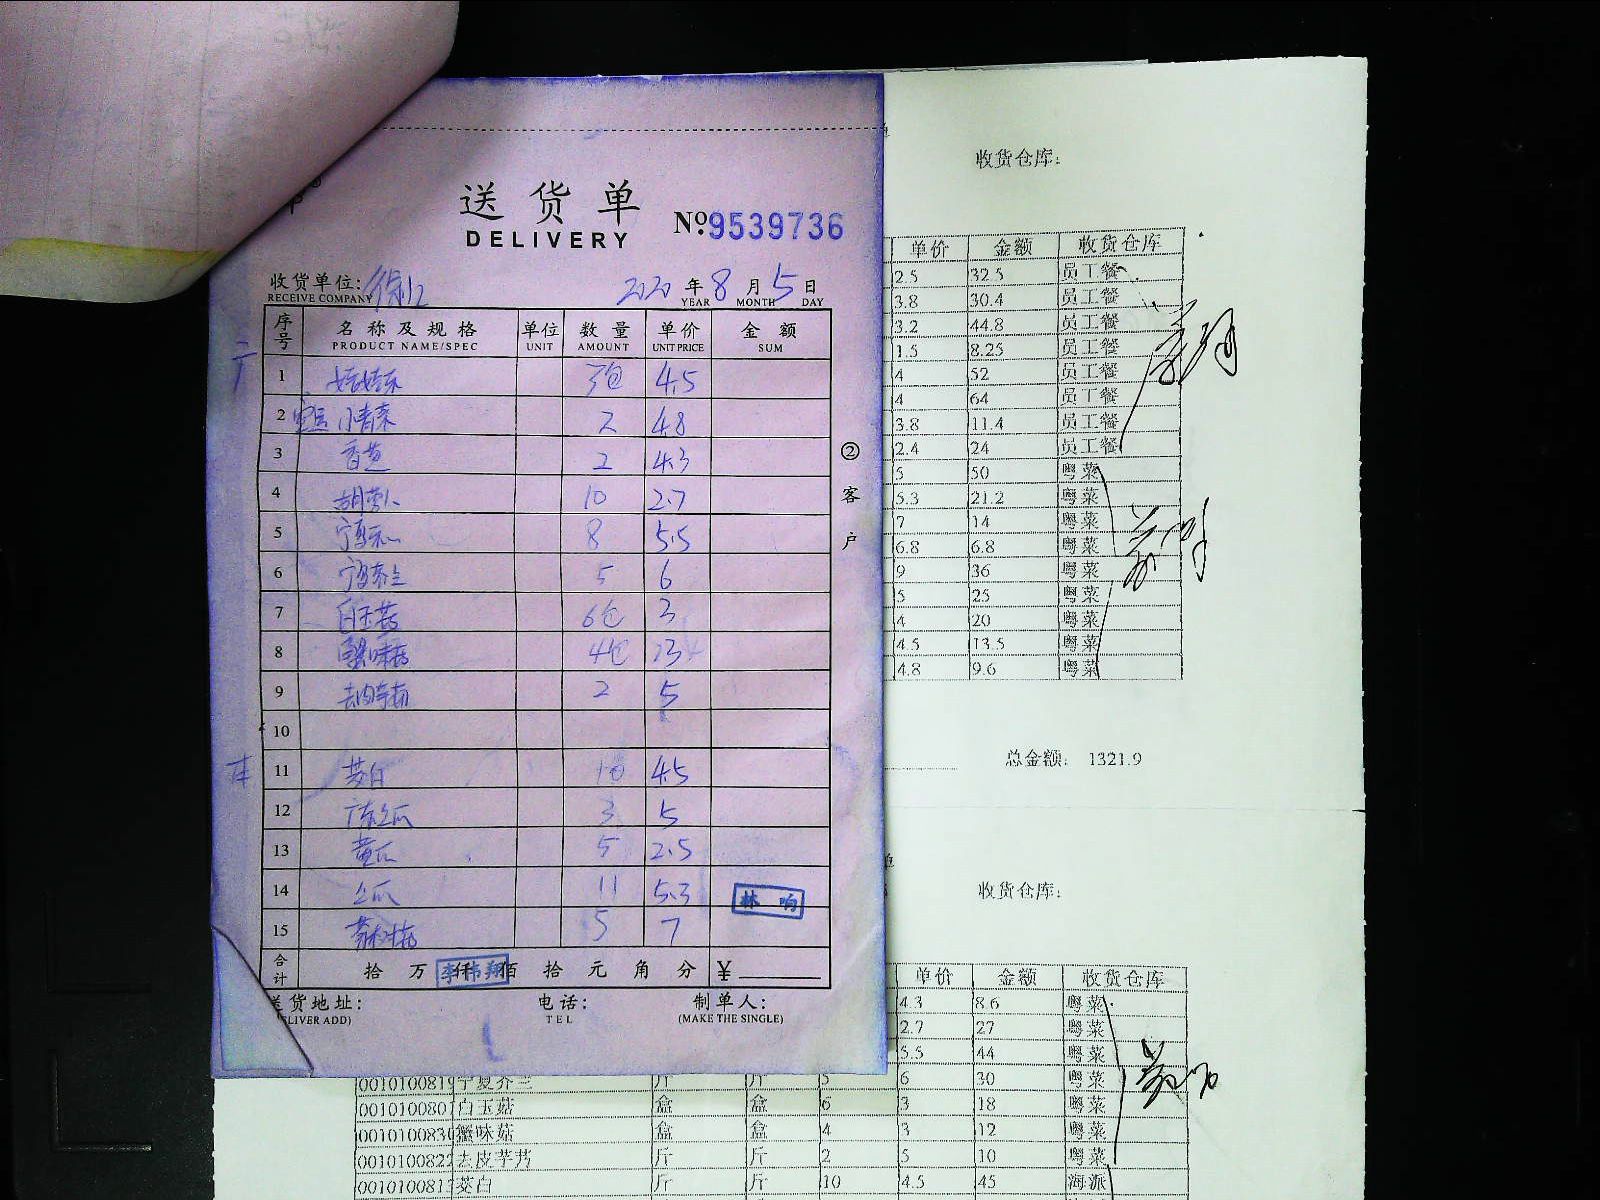 送货单
DELIVERY
№:9539736
收货单位:
RECEIVE COMPANY
2020 年 8 月 5 日
YEAR MONTH DAY
序号 名称及规格 单位 数量 单价 金额
PRODUCT NAME/SPEC UNIT AMOUNT UNIT PRICE SUM
1 娃娃菜 3包 4.5
2 小青菜 2 4.8
3 香葱 2 4.3
4 胡萝卜 10 2.7
5 宁夏菜心 8 5.5
6 宁夏芥兰 5 6
7 白玉菇 6包 3
8 蟹味菇 4包 3
9 去皮芋艿 2 5
10
11 茭白 10 4.5
12 3 5
13 黄瓜 5 2.5
14 11 5.3
15 5 7
合计 拾 万 仟 佰 拾 元 角 分 ¥
李伟翔
林响
送货地址:
(DELIVER ADD)
电话:
TEL
制单人:
(MAKE THE SINGLE)
②客户
收货仓库:
单价 金额 收货仓库
2.5 32.5 员工餐
3.8 30.4 员工餐
3.2 44.8 员工餐
1.5 8.25 员工餐
4 52 员工餐
4 64 员工餐
3.8 11.4 员工餐
2.4 24 员工餐
5 50 粤菜
5.3 21.2 粤菜
7 14 粤菜
6.8 6.8 粤菜
9 36 粤菜
5 25 粤菜
4 20 粤菜
4.5 13.5 粤菜
4.8 9.6 粤菜
总金额: 1321.9
收货仓库:
单价 金额 收货仓库
4.3 8.6 粤菜
2.7 27 粤菜
5.5 44 粤菜
0010100819 宁夏芥兰 斤 斤 5 6 30 粤菜
0010100801 白玉菇 盒 盒 6 3 18 粤菜
0010100830 蟹味菇 盒 盒 4 3 12 粤菜
0010100822 去皮芋艿 斤 斤 2 5 10 粤菜
0010100813 茭白 斤 斤 10 4.5 45 海派